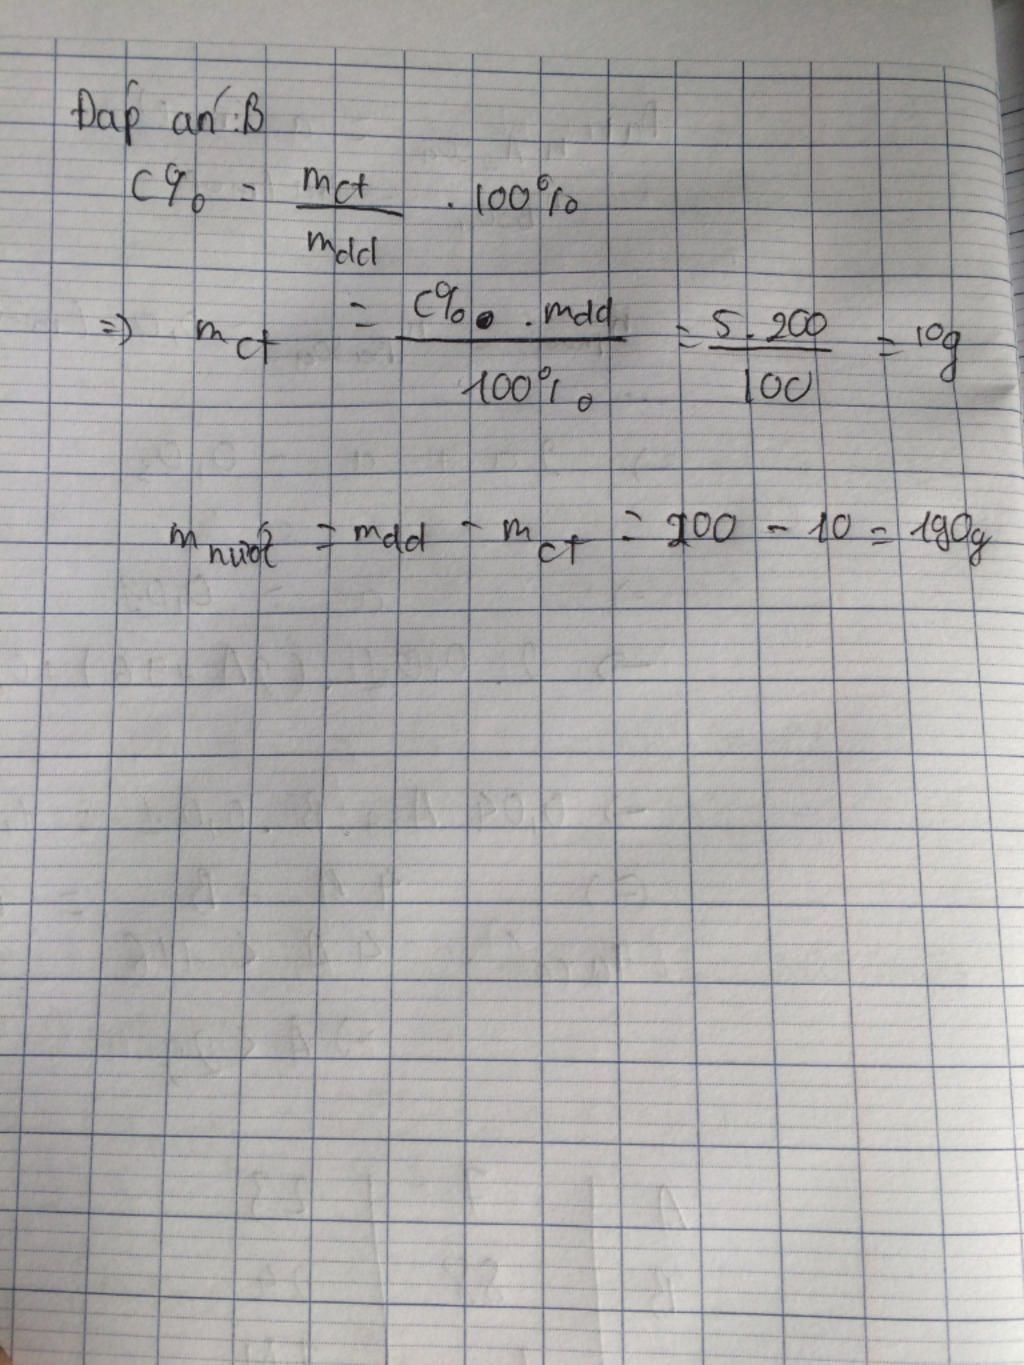 Đáp án: B
C% = mct / mdd . 100%
=> mct = C% . mdd / 100% = 5. 200 / 100 = 10g
mnước = mdd - mct = 200 - 10 = 190g